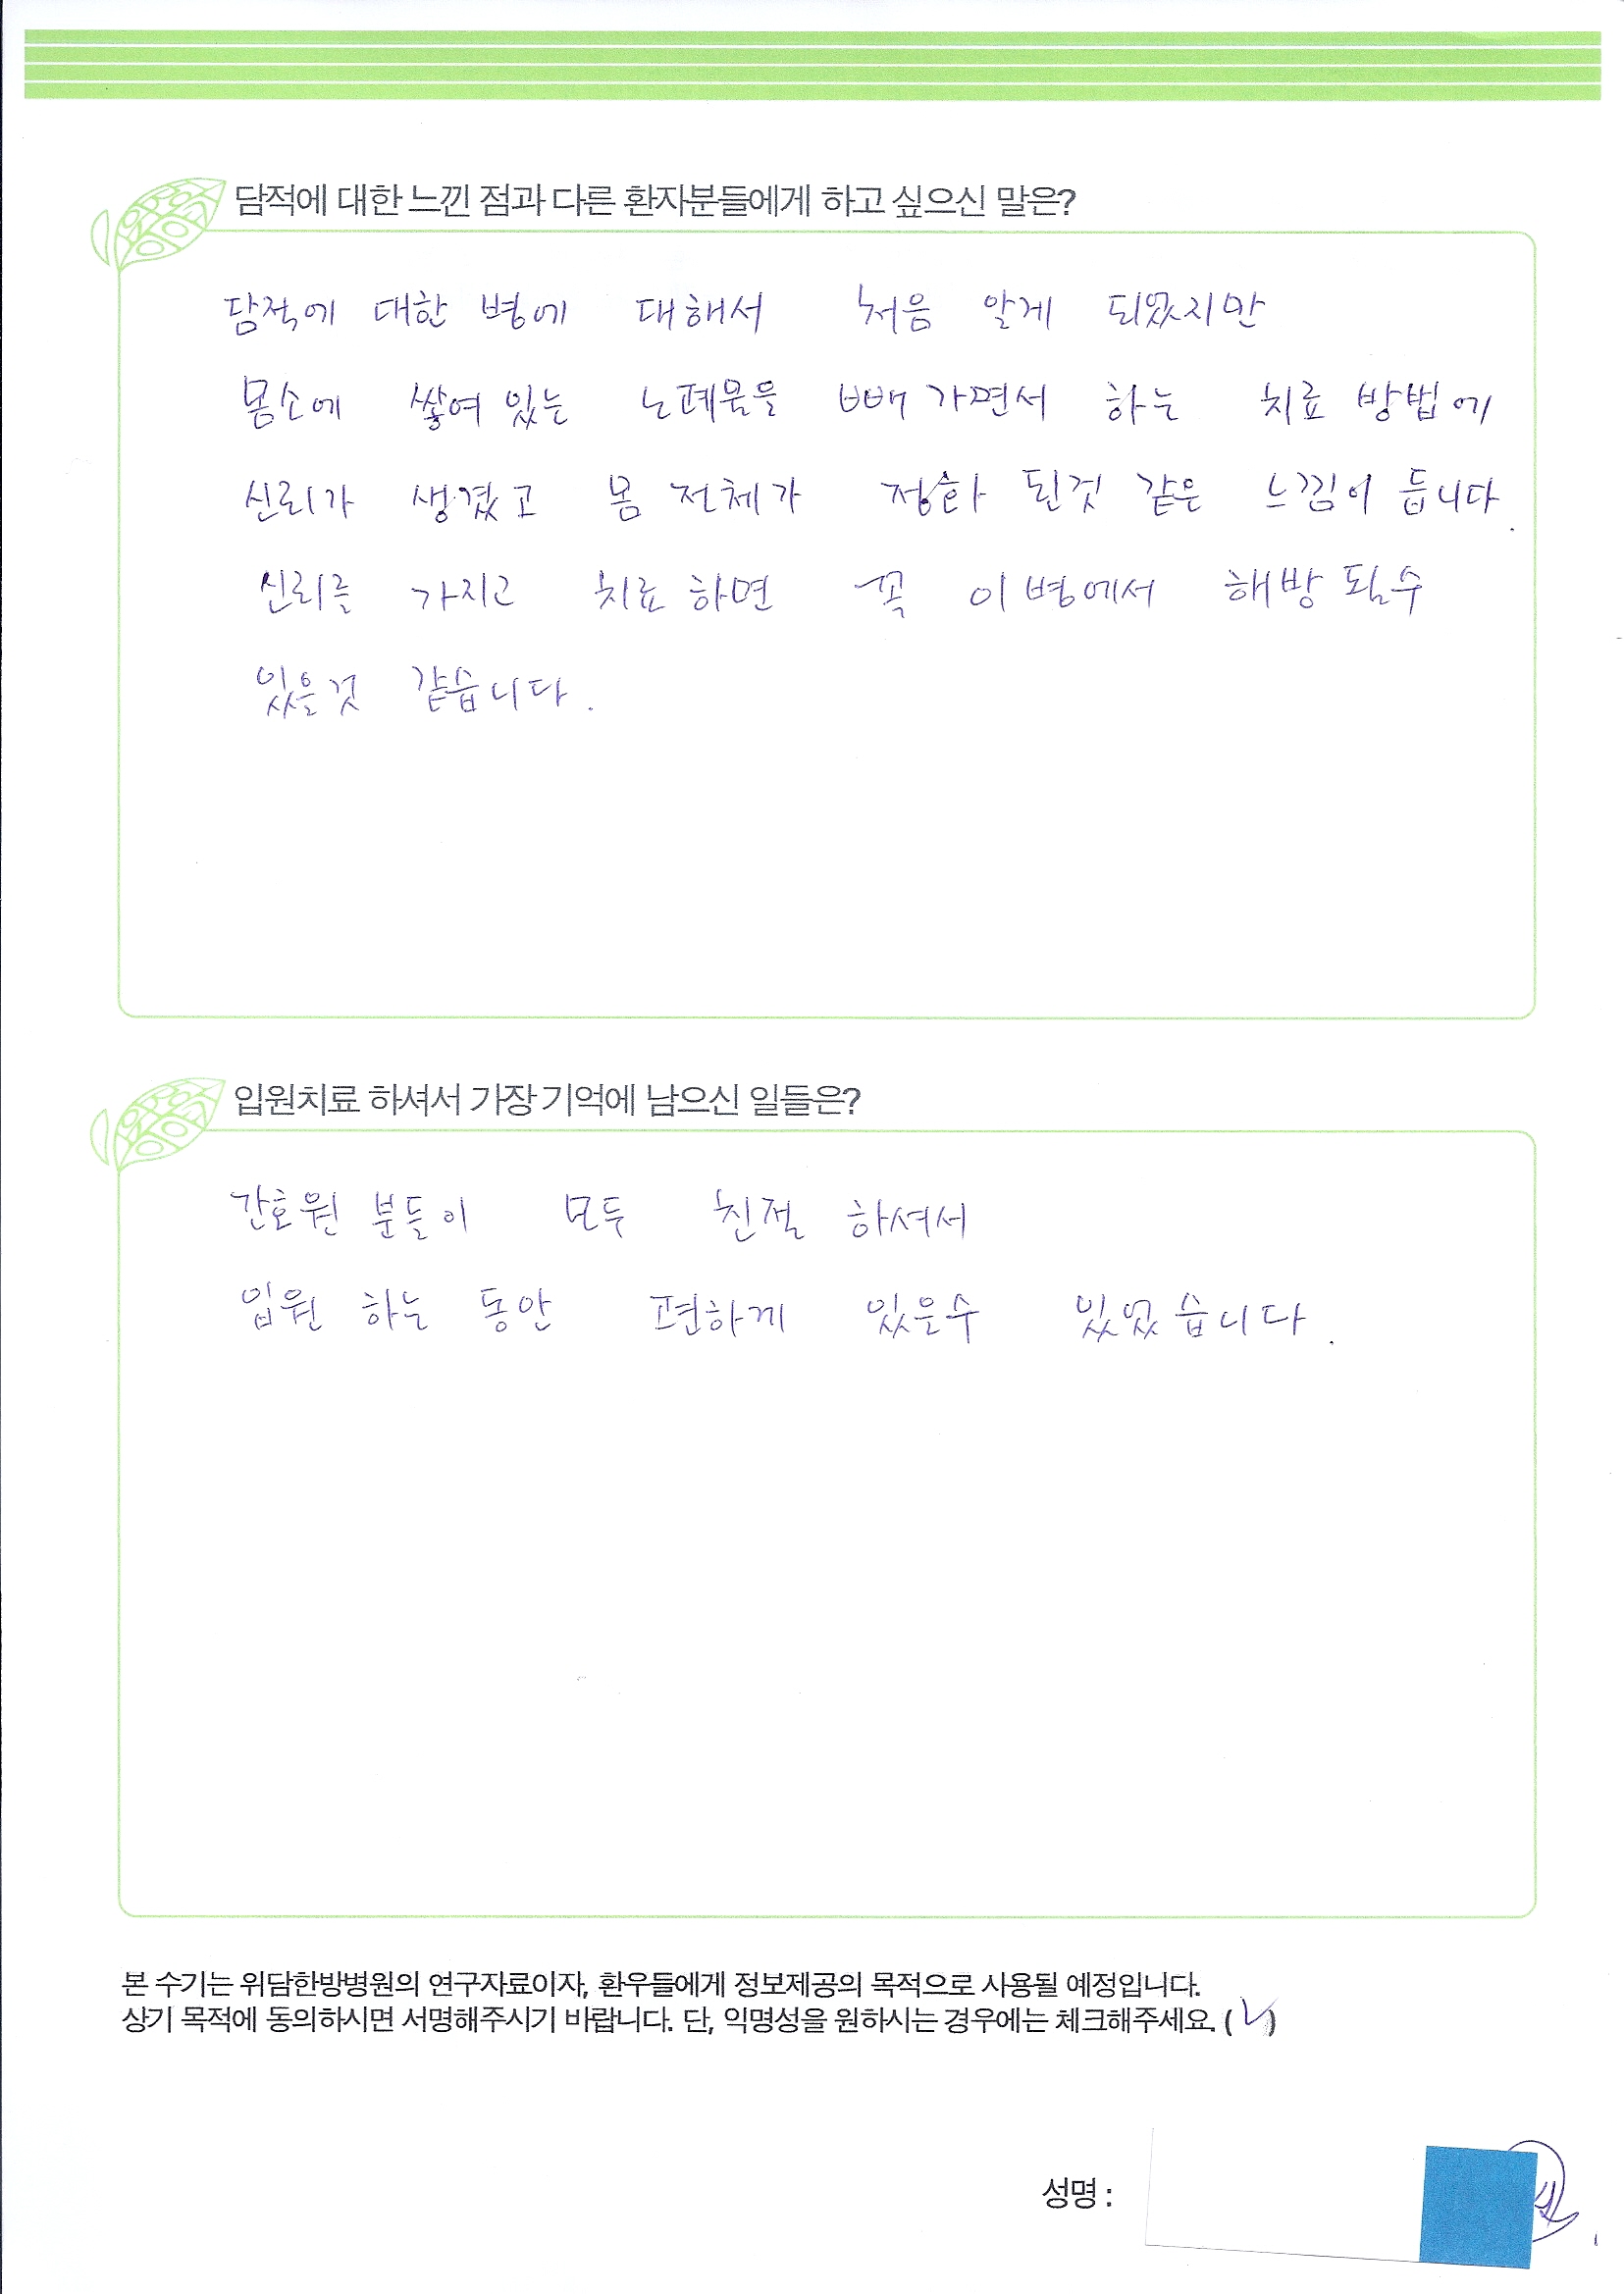 담적에 대한 느낀 점과 다른 환자분들에게 하고 싶으신 말은?
담적에 대한 병에 대해서 처음 알게 되었지만
몸소에 쌓여 있는 노폐물을 빼 가면서 하는 치료 방법에
신뢰가 생겼고 몸 전체가 정화 된것 같은 느낌이 듭니다.
신뢰를 가지고 치료 하면 꼭 이 병에서 해방 될수
있을것 같습니다.
입원치료 하셔서 가장 기억에 남으신 일들은?
간호원 분들이 모두 친절 하셔서
입원 하는 동안 편하게 있을수 있었습니다.
본 수기는 위담한방병원의 연구자료이자, 환우들에게 정보제공의 목적으로 사용될 예정입니다.
상기 목적에 동의하시면 서명해주시기 바랍니다. 단, 익명성을 원하시는 경우에는 체크해주세요. (✓)
성명 :